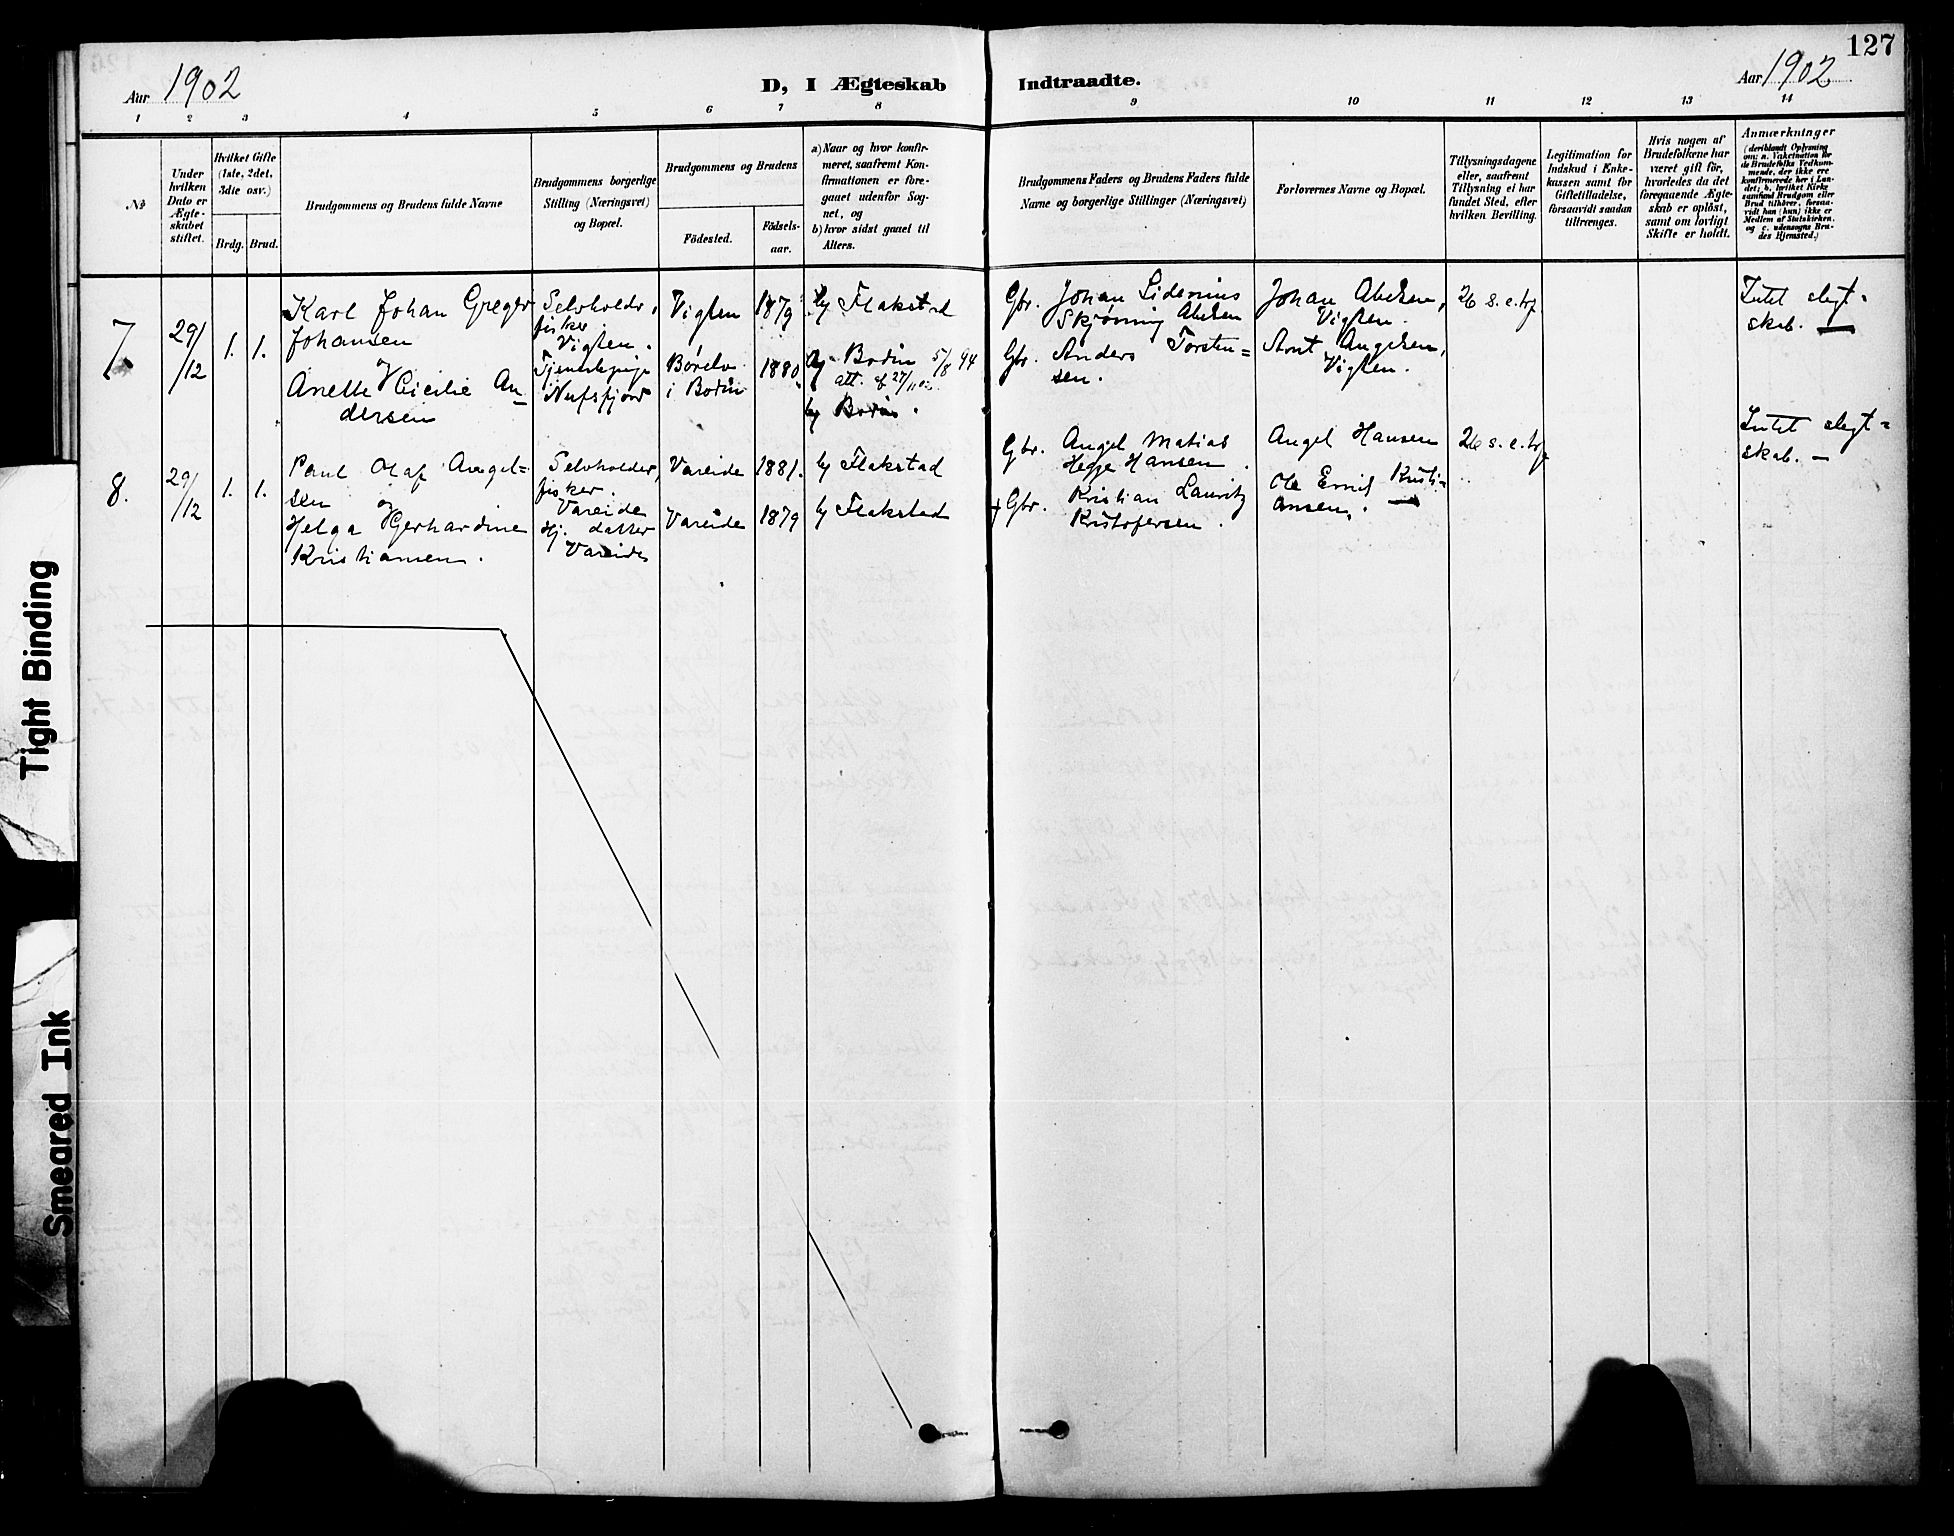 127
Aar 1902
D, I Ægteskab Indtraadte.
Aar 1902
1 2 3 4 5 6 7 8 9 10 11 12 13 14
№
Under
hvilken
Dato er
Ægte-
skabet
stiftet.
Hvilket Gifte
(1ste, 2det,
3die osv.)
Brdg. Brud.
Brudgommens og Brudens fulde Navne
Brudgommens borgerlige
Stilling (Næringsvei)
og Bopæl.
Brudgommens og Brudens
Födested.
Födsels-
aar.
a) Naar og hvor konfir-
meret, saafremt Kon-
firmationen er fore-
gaaet udenfor Sog-
net, og
b) hvor sidst gaaet til
Alters.
Brudgommens Faders og Brudens Faders fulde
Navne og borgerlige Stillinger (Næringsvei)
Forlovernes Navne og Bopæl.
Tillysningsdagene
eller, saafremt
Tillysning ei har
fundet Sted, efter
hvilken Bevilling.
Legitimation for
Indskud i Enke-
kassen samt for
Giftetilladelse,
forsaavidt saadan
tiltrænges.
Hvis nogen af
Brudefolkene har
været gift för,
hvorledes da det
foregaaende Ægte-
skab er oplöst,
samt om lovligt
Skifte er holdt.
Anmærkninger
(deriblandt Oplysning
om: a. Vakcination for
de Brudefolks Vedkom-
mende, der ikke ere
konfirmerede her i Lan-
det; b. hvilket Kirke-
samfund Brudgom eller
Brud tilhörer, forsaa-
vidt han (hun) ikke er
Medlem af Statskirken,
og c. udensogns Bru-
des Hjemsted.)
7.
29/12
1. 1.
Karl Johan Greger
Johansen
og
Anette Cicilie An-
dersen
Selvholder,
fisker.
Vigten.
Tjenestepige
Nufsfjord
Vigten 1879
Børelv
i Bodin
1880
b) Flakstad
a) Bodin 5/8 94
att. af 27/11 02.
b) Bodin.
Gbr. Johan Lidenius
Skjønning Abelsen
Gbr. Anders Torsten=
sen.
Johan Abelsen,
Vigten.
Arnt Angelsen,
Vigten.
26 s. e. trf
Intet slegt-
skab. —
8.
29/12
1. 1.
Paul Olaf Angel=
sen
og
Helga Gerhardine
Kristiansen.
Selvholder,
fisker.
Vareide
Hj. datter
Vareide
Vareide 1881.
Vareide 1879
b) Flakstad
b) Flakstad
Gbr. Angel Matias
Hegge Hansen.
+ Gbr. Kristian Lauritz
Kristofersen.
Angel Hansen
Ole Emil Kristi-
ansen,. —
26 s. e. trf
Intet slegt=
skab. —
Tight Binding
Smeared Ink